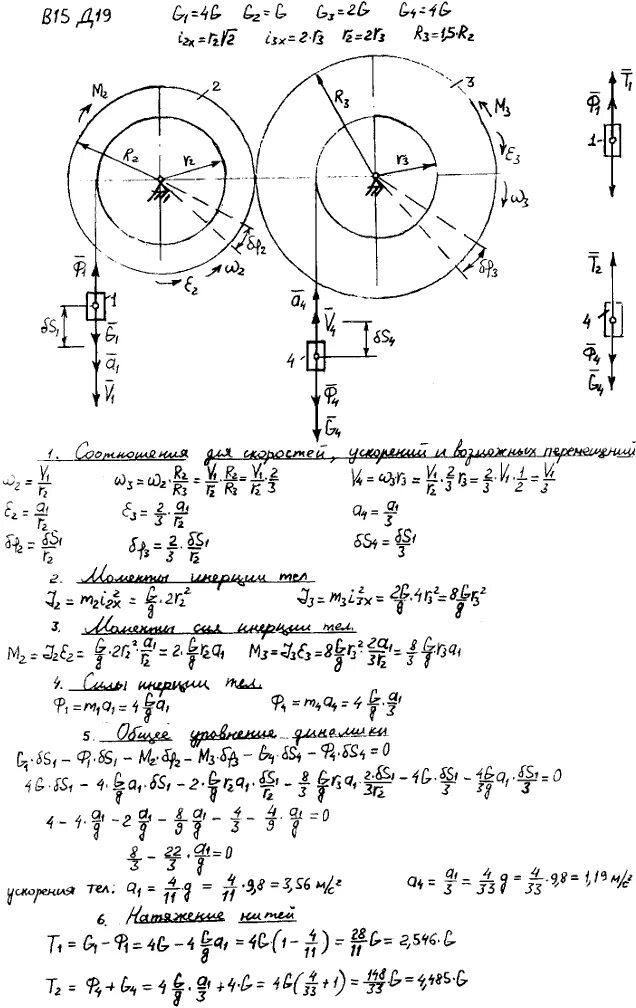 В15 Д19 G₁=4G G₂=G G₃=2G G₄=4G
i₂ₓ=r₂√2 i₃ₓ=2·r₃ r₂=2r₃ R₃=1,5·R₂
M₂ 2 R₂ r₂ δφ₂ ε₂ ω₂
R₃ 3 M₃ ε₃ ω₃ r₃ δφ₃
Φ̄₁ 1 δS₁ Ḡ₁ ā₁ V̄₁
ā₄ V̄₄ δS₄ 4 Φ̄₄ Ḡ₄
T̄₁ Φ̄₁ 1
T̄₂ 4 Φ̄₄ Ḡ₄
1. Соотношения для скоростей, ускорений и возможных перемещений
ω₂=V₁/r₂ ω₃=ω₂·R₂/R₃=V₁/r₂·R₂/R₃=V₁/r₂·2/3 V₄=ω₃r₃=V₁/r₂·2/3 r₃=2/3·V₁·1/2=V₁/3
ε₂=a₁/r₂ ε₃=2/3·a₁/r₂ a₄=a₁/3
δφ₂=δS₁/r₂ δφ₃=2/3·δS₁/r₂ δS₄=δS₁/3
2. Моменты инерции тел
J₂=m₂i₂ₓ²=G/g·2r₂² J₃=m₃i₃ₓ²=2G/g·4r₃²=8G/g r₃²
3. Моменты сил инерции тел.
M₂=J₂ε₂=G/g·2r₂²·a₁/r₂=2·G/g r₂a₁ M₃=J₃ε₃=8G/g r₃²·2a₁/3r₂=8/3 G/g r₃a₁
4. Силы инерции тел.
Φ₁=m₁a₁=4G/g a₁ Φ₄=m₄a₄=4G/g·a₁/3
5. Общее уравнение динамики
G₁·δS₁-Φ₁·δS₁-M₂·δφ₂-M₃·δφ₃-G₄·δS₄-Φ₄·δS₄=0
4G·δS₁-4·G/g a₁·δS₁-2·G/g r₂a₁·δS₁/r₂-8/3 G/g r₃a₁·2·δS₁/3r₂-4G·δS₁/3-4G/3g a₁·δS₁/3=0
4-4·a₁/g-2a₁/g-8/9 a₁/g-4/3-4/9·a₁/g=0
8/3-22/3·a₁/g=0
ускорения тел: a₁=4/11 g=4/11·9,8=3,56 м/с² a₄=a₁/3=4/33 g=4/33·9,8=1,19 м/с²
6. Натяжение нитей
T₁=G₁-Φ₁=4G-4G/g a₁=4G(1-4/11)=28/11 G=2,546·G
T₂=Φ₄+G₄=4G/g·a₁/3+4·G=4G(4/33+1)=148/33 G=4,485·G